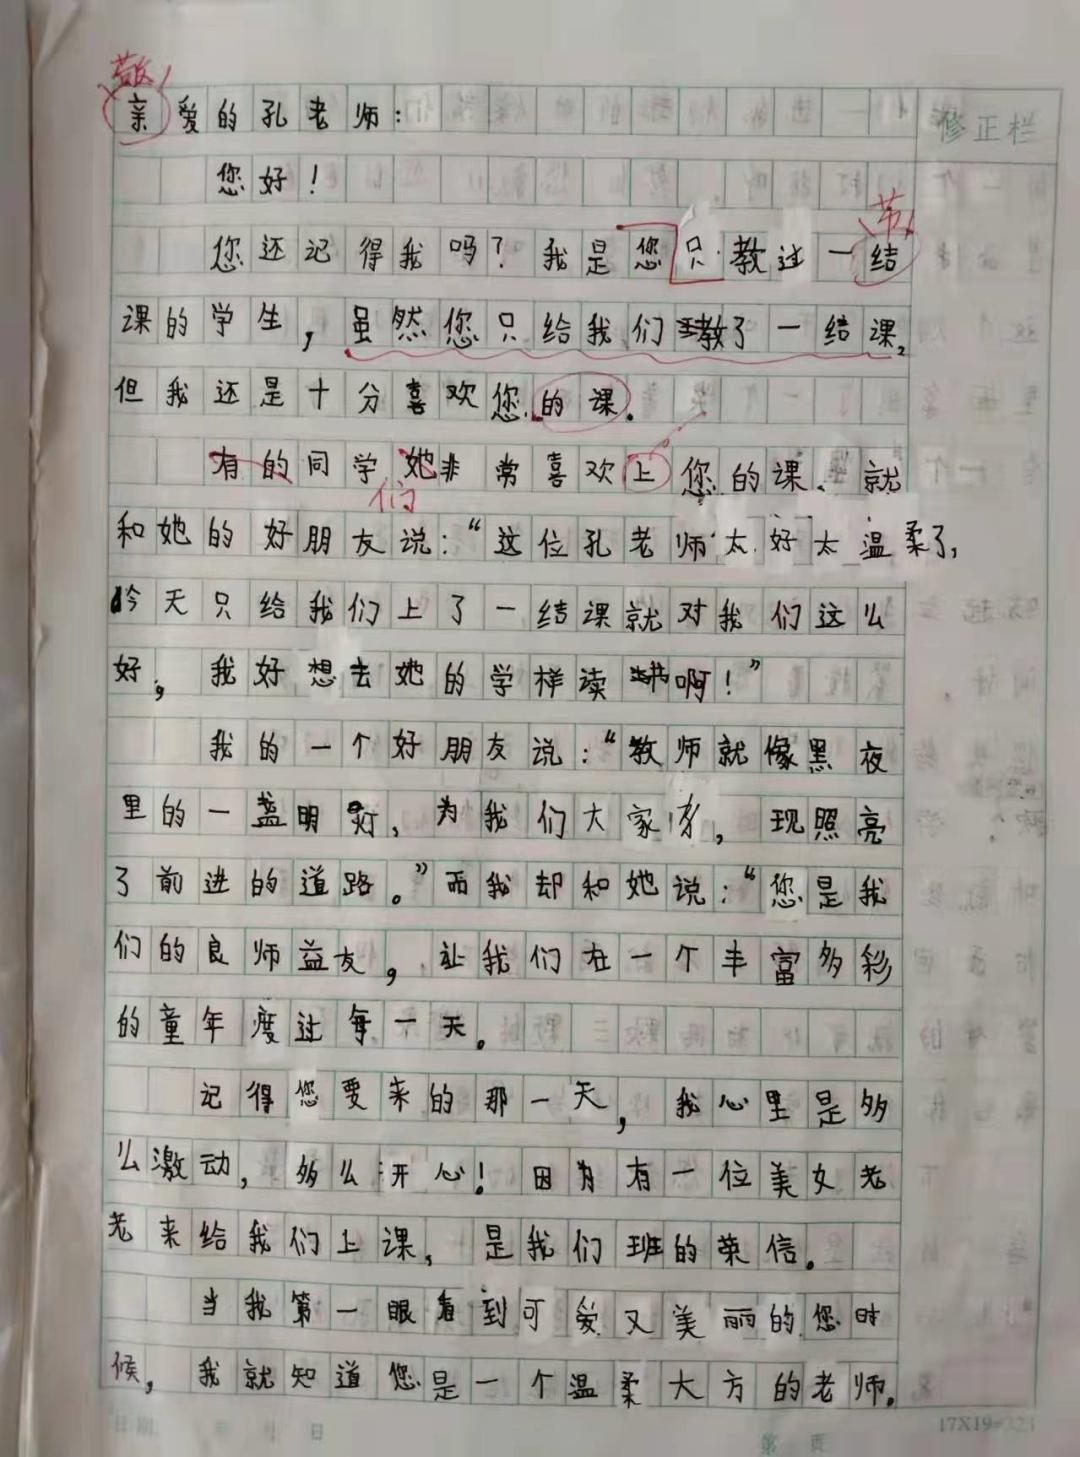 敬
亲爱的孔老师：
修正栏
您好！
节
您还记得我吗？我是您只教过一结
课的学生，虽然您只给我们教了一结课，
但我还是十分喜欢您的课。
有的同学她非常喜欢上您的课、就
们
和她的好朋友说：“这位孔老师太好太温柔了，
今天只给我们上了一结课就对我们这么
好，我好想去她的学样读书啊！”
我的一个好朋友说：“教师就像黑夜
里的一盏明灯，为我们大家，现照亮
了前进的道路。”而我却和她说：“您是我
们的良师益友，让我们在一个丰富多彩
的童年度过每一天。
记得您要来的那一天，我心里是多
么激动，多么开心！因为有一位美女老
老来给我们上课，是我们班的荣信。
当我第一眼看到可爱又美丽的您时
候，我就知道您是一个温柔大方的老师。
日期 年 月 日
第 页
17X19=323